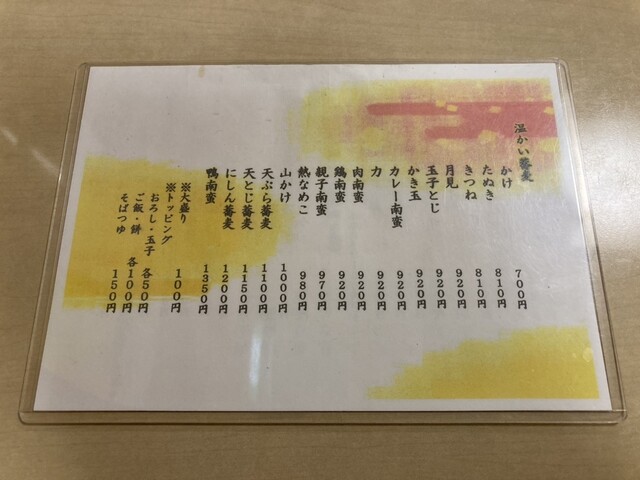 温かい蕎麦
かけ 700円
たぬき 810円
きつね 810円
月見 920円
玉子とじ 920円
かき玉 920円
カレー南蛮 920円
力 920円
肉南蛮 920円
鶏南蛮 920円
親子南蛮 970円
熱なめこ 980円
山かけ 1000円
天ぷら蕎麦 1100円
天とじ蕎麦 1150円
にしん蕎麦 1200円
鴨南蛮 1350円
※大盛り 100円
※トッピング
おろし・玉子 各50円
ご飯・餅 各100円
そばつゆ 150円